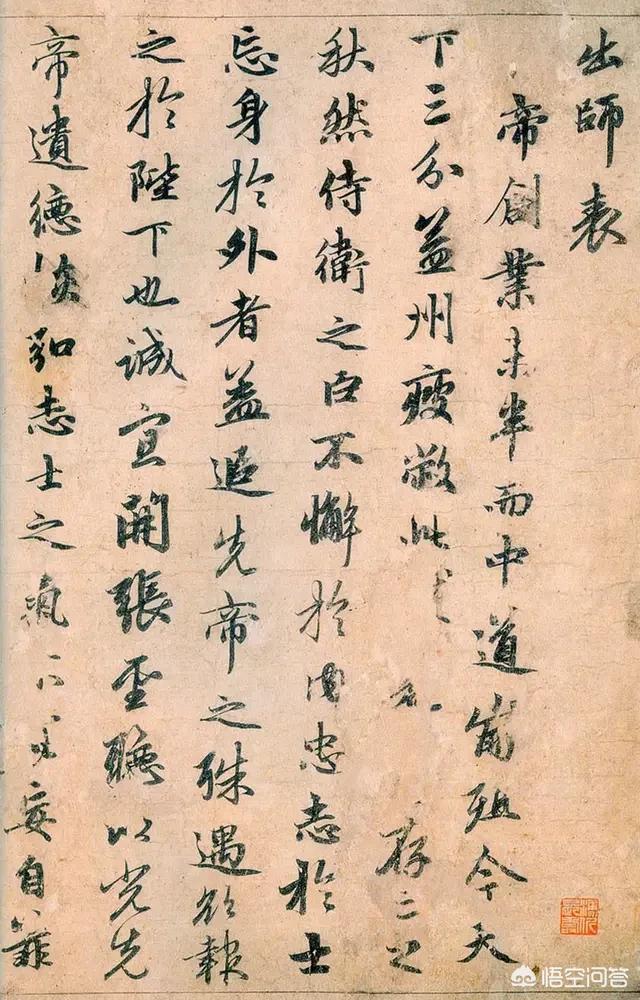 出師表
帝創業未半而中道崩殂今天
下三分益州疲敝此存亡之
秋然侍衛之臣不懈於内忠志於士
忘身於外者蓋追先帝之殊遇欲報
之於陛下也誠宜開張聖聽以光先
帝遺德恢弘志士之氣不宜妄自菲
悟空问答